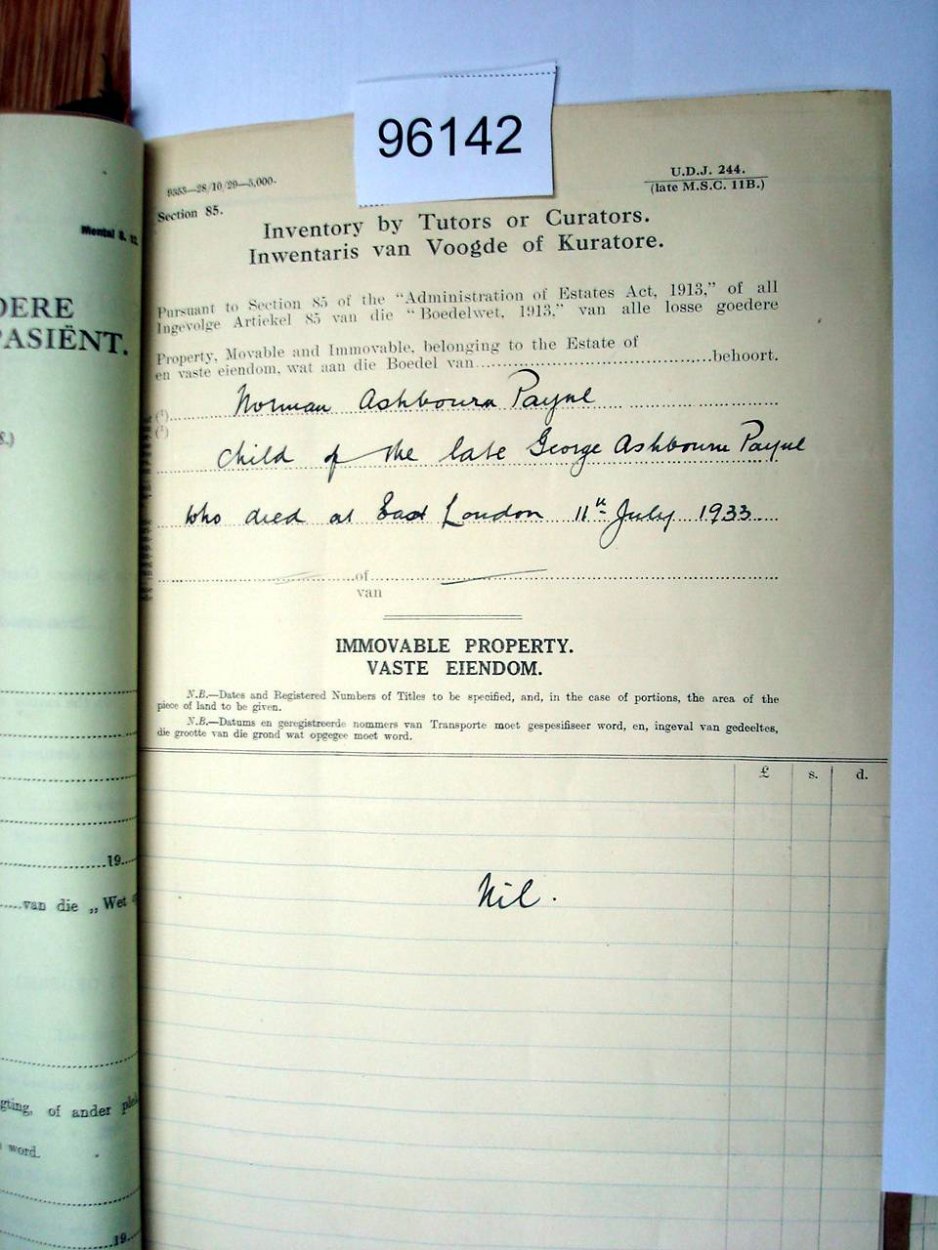 96142
9353—28/10/29—5,000.
U.D.J. 244.
(late M.S.C. 11B.)
Section 85.
Inventory by Tutors or Curators.
Inwentaris van Voogde of Kuratore.
Pursuant to Section 85 of the "Administration of Estates Act, 1913," of all
Ingevolge Artiekel 85 van die "Boedelwet, 1913," van alle losse goedere
Property, Movable and Immovable, belonging to the Estate of
en vaste eiendom, wat aan die Boedel van behoort.
(¹) Norman Ashbourn Payne
(²)
child of the late George Ashbourne Payne
who died at East London 11th July 1933
of
van
IMMOVABLE PROPERTY.
VASTE EIENDOM.
N.B.—Dates and Registered Numbers of Titles to be specified, and, in the case of portions, the area of the
piece of land to be given.
N.B.—Datums en geregistreerde nommers van Transporte moet gespesifiseer word, en, ingeval van gedeeltes,
die grootte van die grond wat opgegee moet word.
£ s. d.
Nil.
DERE
PASIËNT.
19
van die „Wet
of ander
word.
19